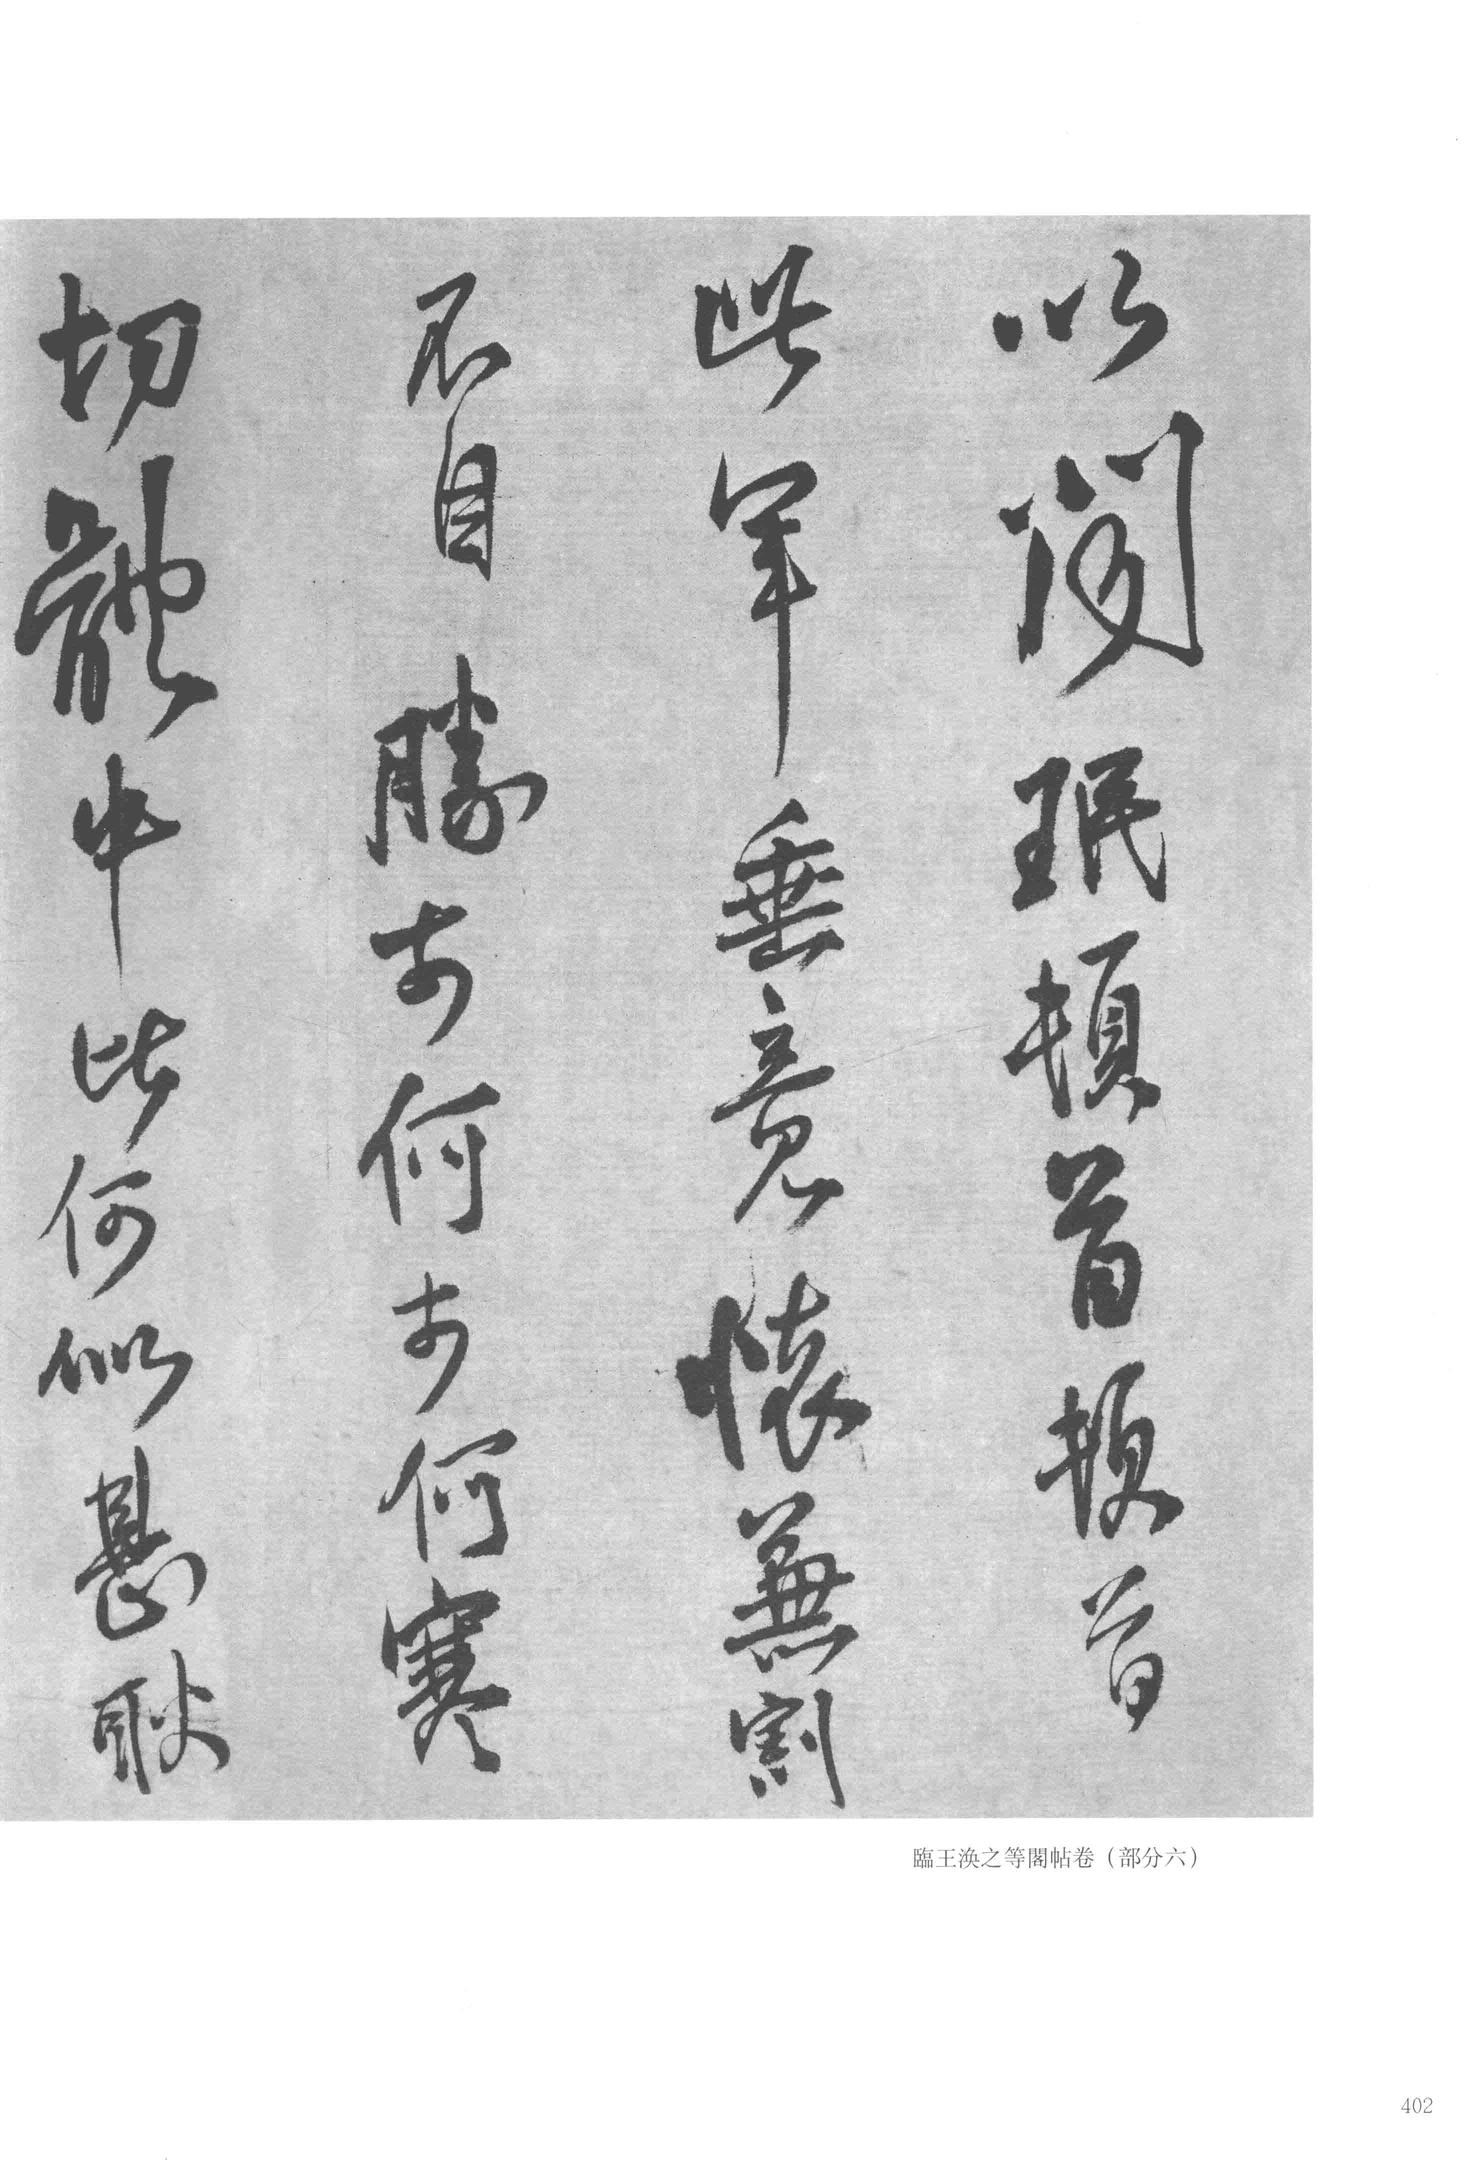 以珉頓首頓首
此年垂竟懷兼割
不自勝奈何奈何寒
切體中比何似甚耿
臨王涣之等閣帖卷（部分六）
402